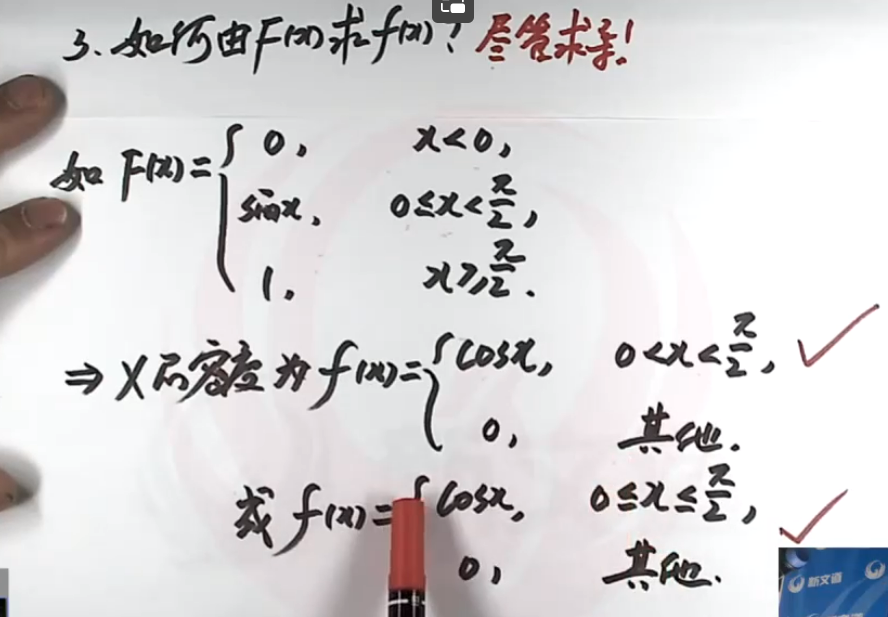 3、如何由F(x)求f(x)？尽管求导！
如 F(x)={ 0, x<0,
sinx, 0≤x<π/2,
1, x≥π/2.
⇒ X的密度为 f(x)={ cosx, 0<x<π/2, ✓
0, 其他.
或 f(x)={ cosx, 0≤x≤π/2, ✓
0, 其他.
新文道